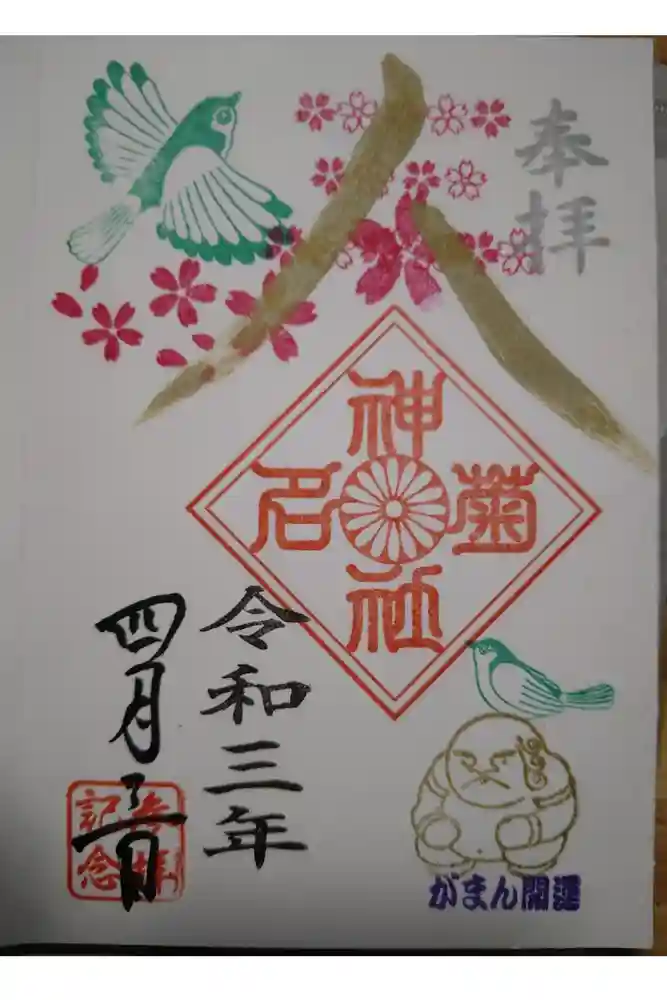 奉拝
八
菊名
神社
令和三年
四月 日
参拝
記念
がまん開運